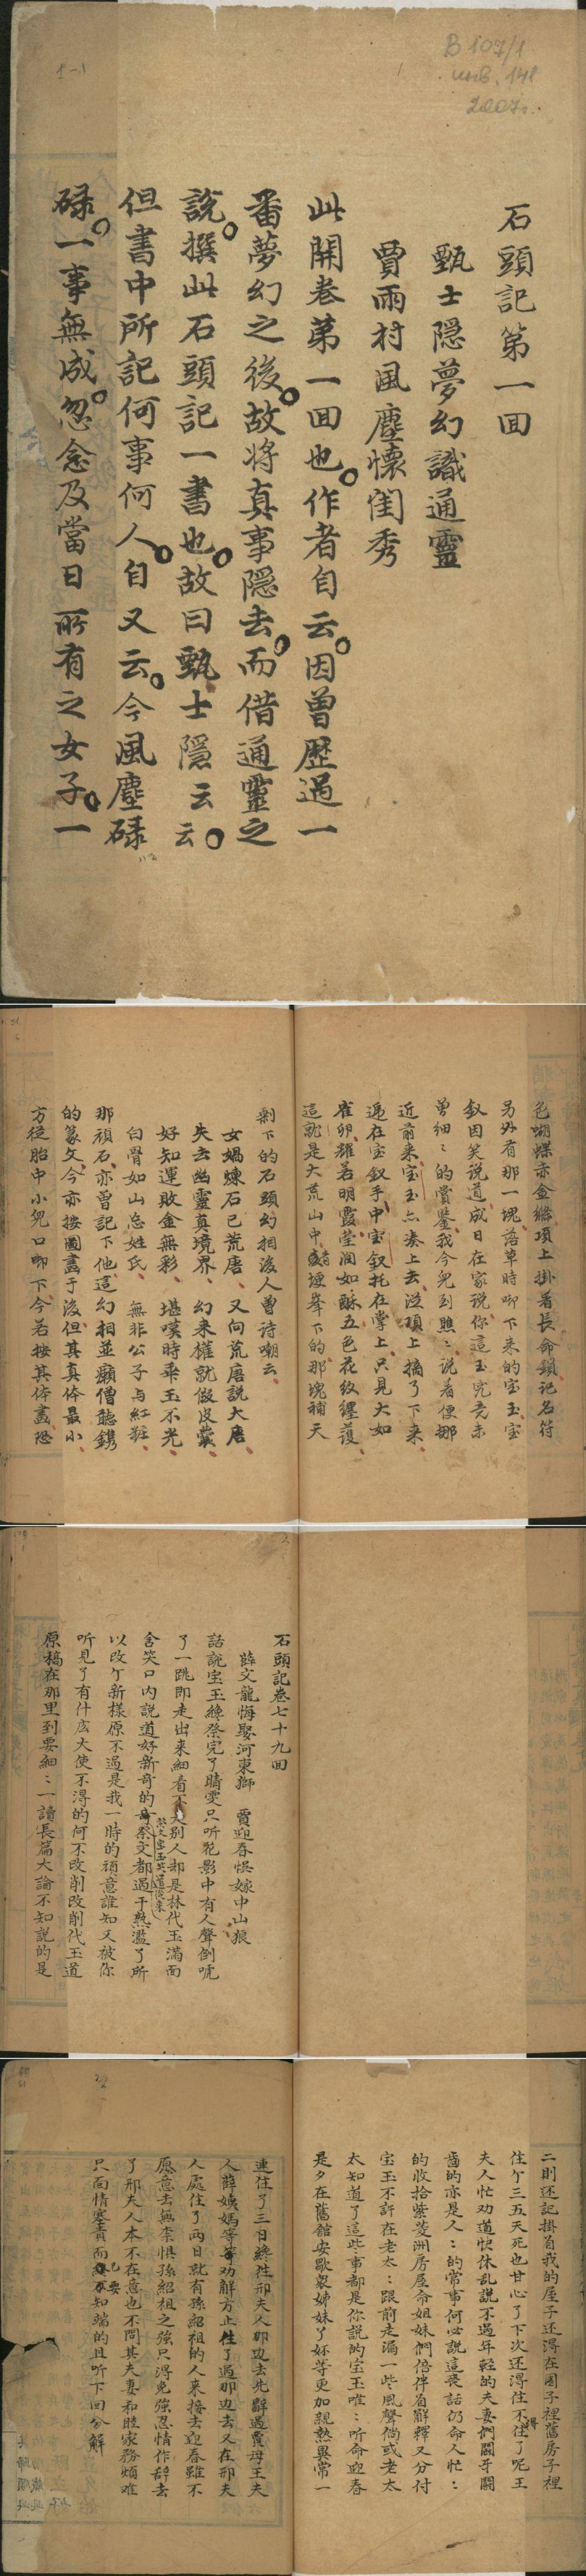 B 107/1
инв. 148
2007г.
石頭記第一回
甄士隱夢幻識通靈
賈雨村風塵懷閨秀
此開卷第一回也作者自云因曾歷過一
番夢幻之後故將真事隱去而借通靈之
說撰此石頭記一書也故曰甄士隱云云
但書中所記何事何人自又云今風塵碌
碌一事無成忽念及當日所有之女子一
色蝴蝶赤金縧項上掛着長命鎖記名符
另外有那一塊落草時啣下來的宝玉宝
釵因笑說道成日在家說你這玉究竟未
曾細〻的賞鑒我今兒到瞧〻說着便挪
近前來宝玉亦湊上去從項上摘了下來
遞在宝釵手中宝釵托在掌上只見大如
雀卵燦若明霞瑩潤如酥五色花紋纏護
這就是大荒山中青埂峯下的那塊補天
剩下的石頭幻相後人曾詩嘲云
女媧煉石已荒唐 又向荒唐說大唐
失去幽靈真境界 幻來權就假皮囊
好知運敗金無彩 堪嘆時乖玉不光
白骨如山忘姓氏 無非公子与紅粧
那頑石亦曾記下他這幻相並癩僧所鐫
的篆文今亦按圖畫于後但其真体最小
方從胎中小兒口啣下今若按其体畫恐
石頭記卷七十九回
薛文龍悔娶河東獅 賈迎春悞嫁中山狼
話說宝玉纔祭完了晴雯只听花影中有人聲倒唬
了一跳即走出来細看不是别人却是林代玉滿面
含笑口内說道好新奇的祭文都過于熟濫了所
以改个新樣原不過是我一時的頑意誰知又被你
听見了有什庅大使不淂的何不改削改削代玉道
原稿在那里到要細〻一讀長篇大論不知說的是
二則还記掛着我的屋子还淂在園子裡舊房子裡
住个三五天死也甘心了下次还淂住不住了呢王
夫人忙劝道快休乱說不過年輕的夫妻們鬬牙鬬
齒的亦是人〻的常事何必說這丧話仍命人忙〻
的收拾紫菱洲房屋命姐妹們倍伴着解釋又分付
宝玉不許在老太〻跟前走漏一些風聲倘或老太
太知道了這些事都是你說的宝玉唯〻听命迎春
是夕在舊舘安歇衆姊妹丫好等更加親熱異常一
連住了三日纔往邢夫人那边去先辭過賈母王夫
人薛姨媽等等劝解方止住了過那边去又在邢夫
人處住了两日就有孫紹祖的人來接去迎春雖不
愿意去無柰惧孫紹祖之強只淂免強忍情作辞去
了邢夫人本不在意也不問其夫妻和睦家務煩难
只面情塞責而已要知端的且听下回分解